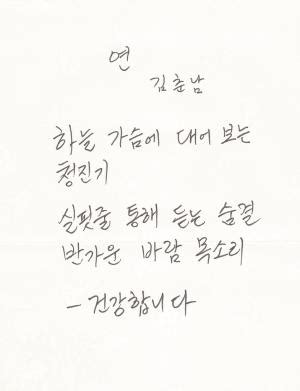 연
김춘남
하늘 가슴에 대어 보는
청진기
실핏줄 통해 듣는 숨결
반가운 바람 목소리
– 건강합니다